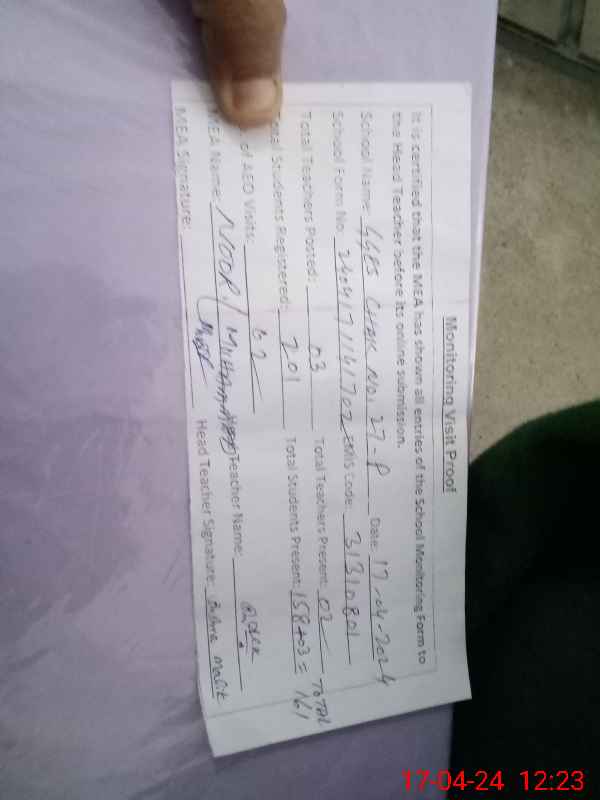 Monitoring Visit Proof
It is certified that the MEA has shown all entries of the School Monitoring Form to
the Head Teacher before its online submission.
School Name: GGPS CHAK NO. 27-P Date: 17-04-2024
School Form No: EMIS Code: 31310801
Total Teachers Posted: 03 Total Teachers Present: 02
Total Students Registered: 201 Total Students Present: 158+03= TOTAL 161
of AEO Visits: 02
MEA Name: NOOR MUHAMMAD Teacher Name:
MEA Signature: Head Teacher Signature: Bushra Malik
17-04-24 12:23